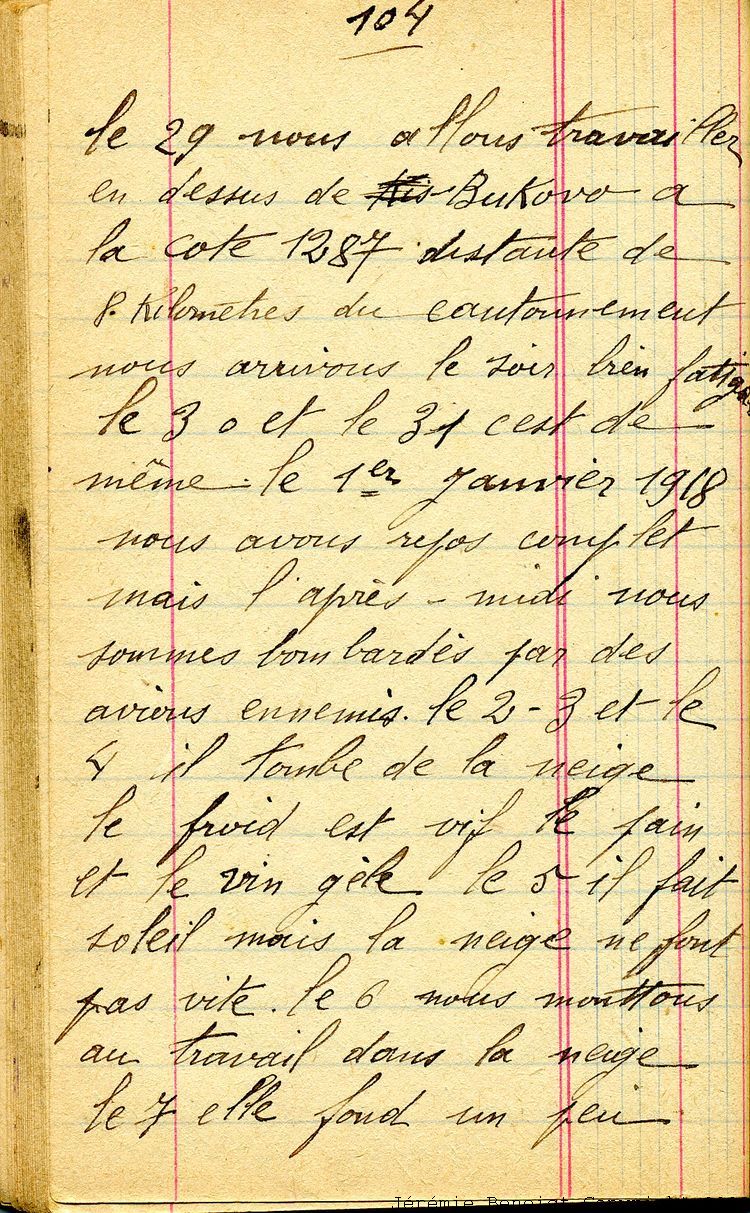 104
le 29 nous allons travailler
en dessus de Kis Bukovo a
la cote 1287 distante de
8. Kilomètres du cantonnement
nous arrivons le soir bien fatigué
le 30 et le 31 cest de
même. le 1er Janvier 1918
nous avons repos complet
mais l'après-midi nous
sommes bombardés par des
avions ennemis. le 2-3 et le
4 il tombe de la neige
le froid est vif le pain
et le vin gèle le 5 il fait
soleil mais la neige ne font
pas vite. le 6 nous monttons
au travail dans la neige
le 7 elle fond un peu
Jérémie Benoist